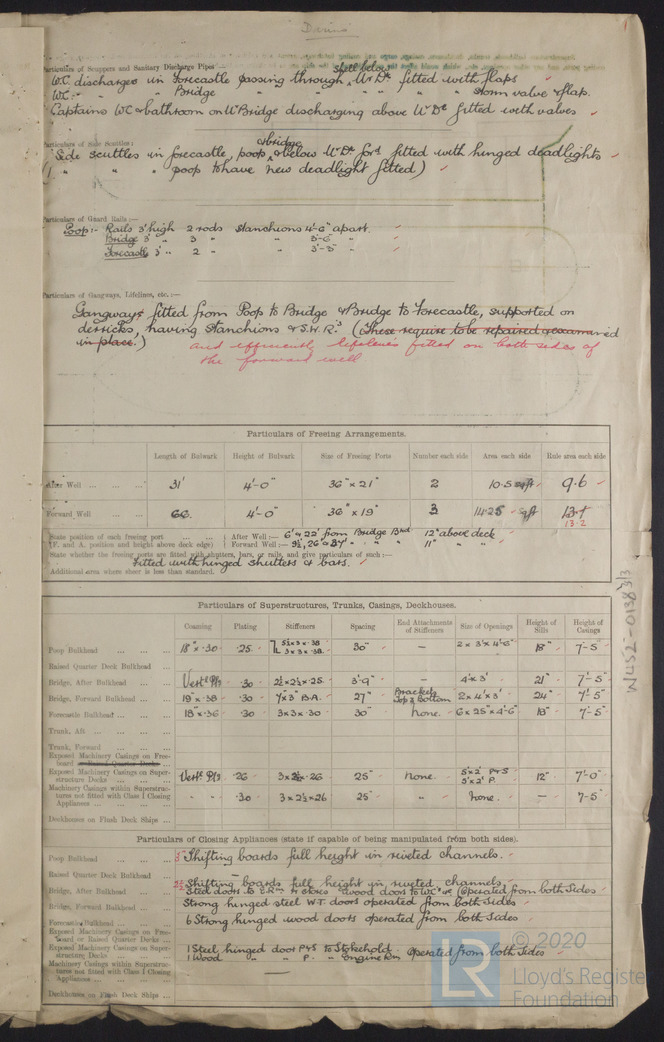 Particulars of Scuppers and Sanitary Discharge Pipes—
shell below
W.C. discharges in Forecastle passing through Ur Dk fitted with flaps
W.C. " " Bridge " " " " " storm valve & flap.
Captains WC & bathroom on Ur Bridge discharging above Ur Dk fitted with valves
Particulars of Side Scuttles:
& bridge
Side scuttles in forecastle, poop & below Ur Dk ford fitted with hinged deadlights
( " " " poop to have new deadlight fitted)
Particulars of Guard Rails:—
Poop:- Rails 3' high 2 rods Stanchions 4'-6" apart.
Bridge 3' " 3 " " 3'-6" "
Forecastle 3' " 2 " " 3'-3" "
Particulars of Gangways, Lifelines, etc.:—
Gangways fitted from Poop to Bridge & Bridge to Forecastle, supported on
derricks, having stanchions & S.W.R.s (These require to be repaired & examined
in place.) and efficiently lifelines fitted on both sides of
the forward well
Particulars of Freeing Arrangements.
Length of Bulwark Height of Bulwark Size of Freeing Ports Number each side Area each side Rule area each side
After Well 31' 4'-0" 36" x 21" 2 10.5 sq ft 9.6
Forward Well 66. 4'-0" 36" x 19" 3 14.25 sq ft 13.7
13.2
State position of each freeing port After Well:— 6' & 22' from Bridge Bhd 12" above deck
(F. and A. position and height above deck edge) Forward Well:— 9½, 26' & 57' " " " 11" " "
State whether the freeing ports are fitted with shutters, bars, or rails, and give particulars of such:—
Fitted with hinged shutters & bars.
Additional area where sheer is less than standard.
Particulars of Superstructures, Trunks, Casings, Deckhouses.
Coaming Plating Stiffeners Spacing End Attachments of Stiffeners Size of Openings Height of Sills Height of Casings
Poop Bulkhead 18" x .30 .25 5½ x 3 x .38 30" — 2 x 3' x 4'-6" 18" 7'-5"
3 x 3 x .38
Raised Quarter Deck Bulkhead
Bridge, After Bulkhead Vertl Pls .30 2½ x 2½ x .25 3'-9" — 4' x 3' 21" 7'-5"
Bridge, Forward Bulkhead 19" x .38 .30 7" x 3" B.A. 27" Brackets Top & Bottom 2 x 4' x 3' 24" 7' 5"
Forecastle Bulkhead 18" x .36 .30 3 x 3 x .30 30" None. 6 x 25" x 4'-6" 18" 7'-5"
Trunk, Aft
Trunk, Forward
Exposed Machinery Casings on Free-
board or Raised Quarter Decks
Exposed Machinery Casings on Super-
structure Decks Vertl Pls .26 3 x 2½ x .26 25" None 5' x 2' P&S 12" 7'-0"
5' x 2' P.
Machinery Casings within Superstruc-
tures not fitted with Class I Closing
Appliances " " .30 3 x 2½ x 26 25" " None. — 7-5"
Deckhouses on Flush Deck Ships
Particulars of Closing Appliances (state if capable of being manipulated from both sides).
Poop Bulkhead 3" Shifting boards full height in riveted channels.
Raised Quarter Deck Bulkhead —
2½ Shifting boards full height in riveted channels.
Bridge, After Bulkhead Steel doors to E.R. & stores wood doors to WC's &c Operated from both Sides
Bridge, Forward Bulkhead Strong hinged steel W.T. doors operated from both Sides
Forecastle Bulkhead 6 Strong hinged wood doors operated from both Sides
Exposed Machinery Casings on Free-
board or Raised Quarter Decks
Exposed Machinery Casings on Super-
structure Decks 1 Steel hinged door P&S to Stokehold Operated from both Sides
1 Wood " " P. " Engine Rm
Machinery Casings within Superstruc-
tures not fitted with Class I Closing
Appliances —
Deckhouses on Flush Deck Ships
W452-0138 3/3
LR
© 2020
Lloyd's Register
Foundation